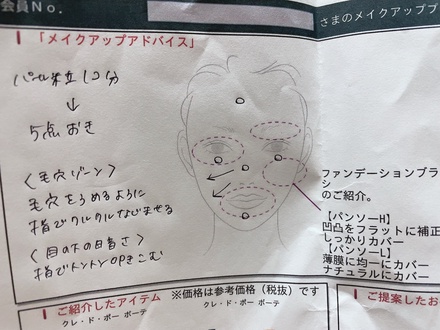 会員No.
さまのメイクアッププ
1 「メイクアップアドバイス」
パール粒 1コ分
↓
5点おき
〈毛穴ゾーン〉
毛穴をうめるように
指でクルクルなじませる
〈目の下の
指でトントン
ファンデーションブラ
シ
のご紹介。
【パンソーH】
凹凸をフラットに補正
しっかりカバー
【パンソーL】
薄膜に均一にカバー
ナチュラルにカバー
ご紹介したアイテム
※価格は参考価格（税抜）です
クレ・ド・ポー ボーテ
クレ・ド・ポー ボーテ
ご提案したお